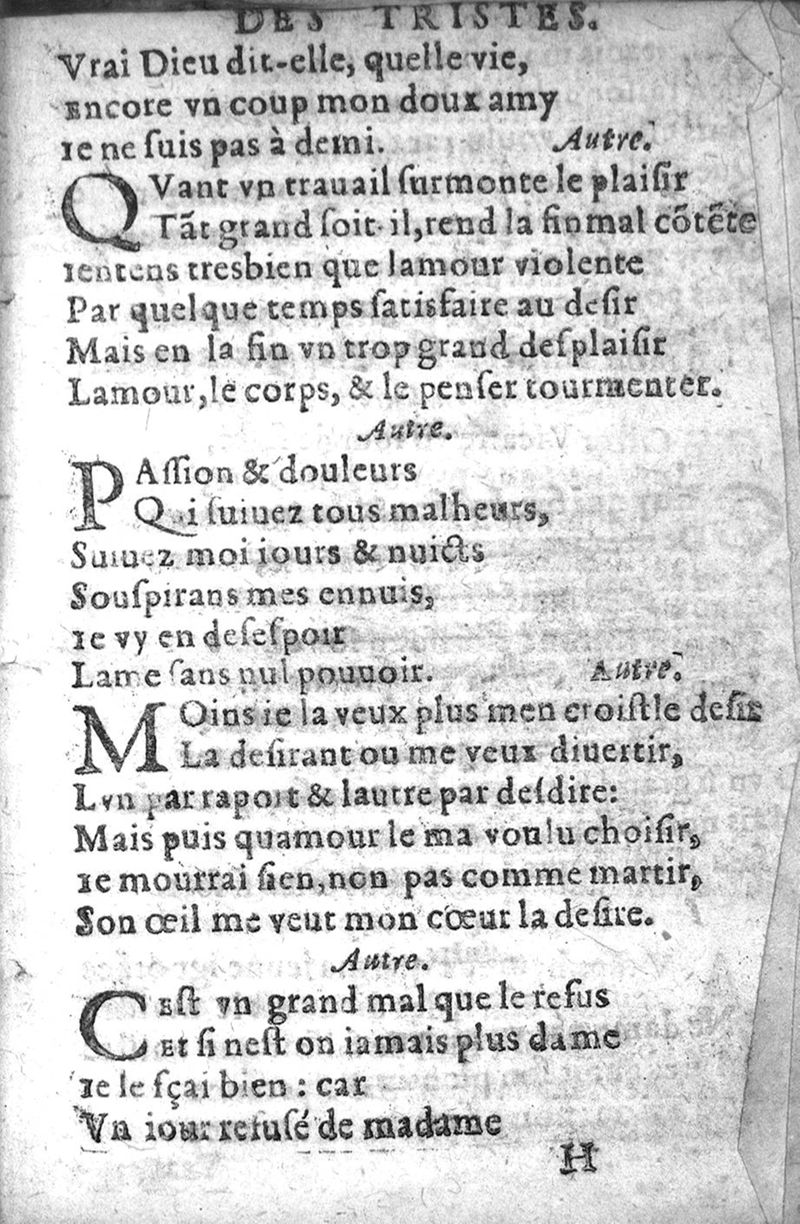 DES TRISTES.
Vrai Dieu dit-elle, quelle vie,
Encore vn coup mon doux amy
Ie ne ſuis pas à demi. Autre.
QVant vn trauail ſurmonte le plaiſir
Tãt grand ſoit il, rend la fin mal cõtẽte
Ientens tresbien que lamour violente
Par quelque temps ſatisfaire au deſir
Mais en la fin vn trop grand deſplaiſir
Lamour, le corps, & le penſer tourmenter.
Autre.
PAſſion & douleurs
Qui ſuiuez tous malheurs,
Suiuez moi iours & nuicts
Souſpirans mes ennuis,
Ie vy en deſeſpoir
Lame ſans nul pouuoir. Autre.
MOins ie la veux plus men croiſt le deſir
La deſirant ou me veux diuertir,
Lvn par raport & lautre par deſdire:
Mais puis quamour le ma voulu choiſir,
Ie mourrai ſien, non pas comme martir,
Son œil me veut mon cœur la deſire.
Autre.
CEſt vn grand mal que le refus
Et ſi neſt on iamais plus dame
Ie le ſçai bien : car
Vn iour refuſé de madame
H